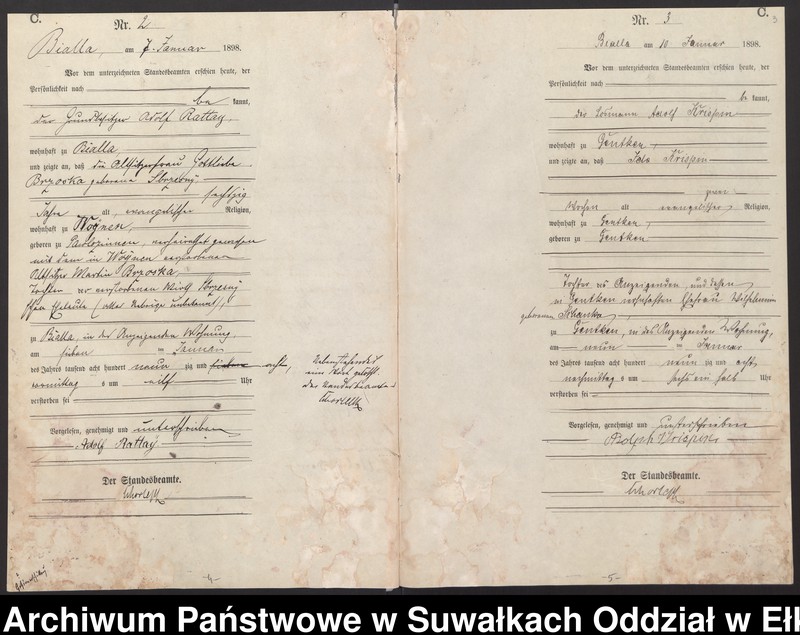 C.
Nr. 2
Bialla, am 7. Januar 1898.
Vor dem unterzeichneten Standesbeamten erschien heute, der
Persönlichkeit nach
be kannt,
der Grundbesitzer Adolf Rattay
wohnhaft zu Bialla
und zeigte an, daß die Altsitzerfrau Gottliebe
Brzoska geborene
sechzig
Jahre alt, evangelischer Religion,
wohnhaft zu
geboren zu verheirathet gewesen
mit dem in verstorbenen
Altsitzer Martin Brzoska,
Tochter der verstorbenen
schen Eheleute (alles Uebrige unbekannt),
zu Bialla, in des Anzeigenden Wohnung,
am sieben ten Januar
des Jahres tausend acht hundert neun zig und sieben acht,
vormittag s um elf Uhr
verstorben sei
Vorgelesen, genehmigt und unterschrieben
Adolf Rattay
Der Standesbeamte.
Nebenstehend
ein Wort gelöscht.
Der Standesbeamte
-4-
C.
3
Nr. 3
Bialla am 10 Januar 1898.
Vor dem unterzeichneten Standesbeamten erschien heute, der
Persönlichkeit nach
be kannt,
der Losmann Adolf Krispin
wohnhaft zu Gentken,
und zeigte an, daß Krispin
zwei
Wochen alt evangelischer Religion,
wohnhaft zu Gentken,
geboren zu Gentken
Tochter des Anzeigenden, und dessen
in Gentken wohnhaften Ehefrau Wilhelmine
geborenen
zu Gentken, in des Anzeigenden Wohnung,
am neun ten Januar
des Jahres tausend acht hundert neun zig und acht,
nachmittag s um sechs ein halb Uhr
verstorben sei
Vorgelesen, genehmigt und unterschrieben
Adolph Krispin
Der Standesbeamte.
-5-
Archiwum Państwowe w Suwałkach Oddział w Ełk